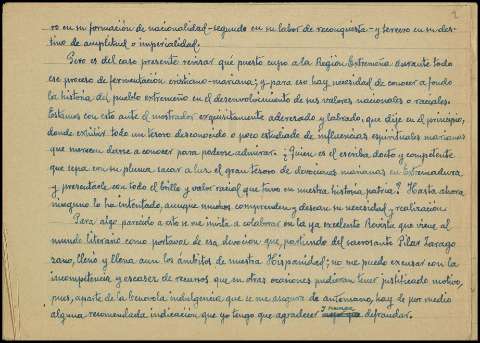 2
ro en su formación de nacionalidad - segundo en su labor de reconquista - y tercero en su des-
tino de amplitud o imperialidad.
Pero es del caso presente revisar qué puesto cupo a la Región Extremeña durante todo
ese proceso de fermentación cristiano-mariana; y para eso hay necesidad de conocer a fondo
la historia del pueblo extremeño en el desenvolvimiento de sus valores nacionales o raciales.
Estamos con esto ante el mostrador exquisitamente aderezado y labrado, que dije en el principio,
donde existir todo un tesoro desconocido o poco estudiado de influencias espirituales marianas
que merecen darse a conocer para poderse admirar. ¿Quien es el escriba, docto y competente
que sepa con su pluma sacar a luz el gran tesoro de devociones marianas en Extremadura
y presentarle con todo el brillo y valor racial que tuvo en nuestra historia patria? Hasta ahora
ninguno lo ha intentado, aunque muchos comprenden y desean su necesidad y realización.
Para algo parecido a esto se me invita a colaborar en la ya excelente Revista que viene al
mundo literario como portavoz de esa devoción que, partiendo del sacrosanto Pilar Zarago
zano, llenó y llena aun los ámbitos de nuestra Hispanidad; no me puedo excusar con la
incompetencia y escasez de recursos que en otras ocasiones pudieran tener justificado motivo,
pues, aparte de la benévola indulgencia que se me asegura de antemano, hay de por medio
alguna recomendada indicación que yo tengo que agradecer y nunca defraudar.